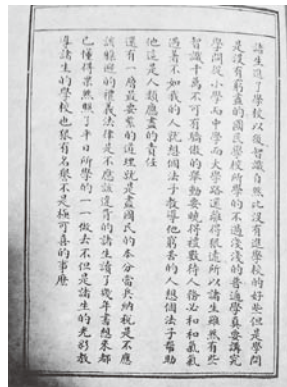 諸生進了學校以後智識自然比沒有進學校的好些但是學問
是沒有窮盡的國民學校所學的不過淺淺的普通學真要講究
學問從小學而中學而大學路還離得狠遠所以諸生雖然有些
智識千萬不可有驕傲的舉動要曉得禮數待人務必和和氣氣
遇著不如我的人就想個法子教導他窮苦的人想個法子幫助
他這是人類應盡的責任
還有一層最要緊的道理就是盡國民的本分當兵納稅是不應
該躲避的禮義法律是不應該違背的諸生讀了幾年書想來都
已懂得果然照了平日所學的一一做去不但是諸生的光彩教
導諸生的學校也狠有名譽不是極可喜的事麼